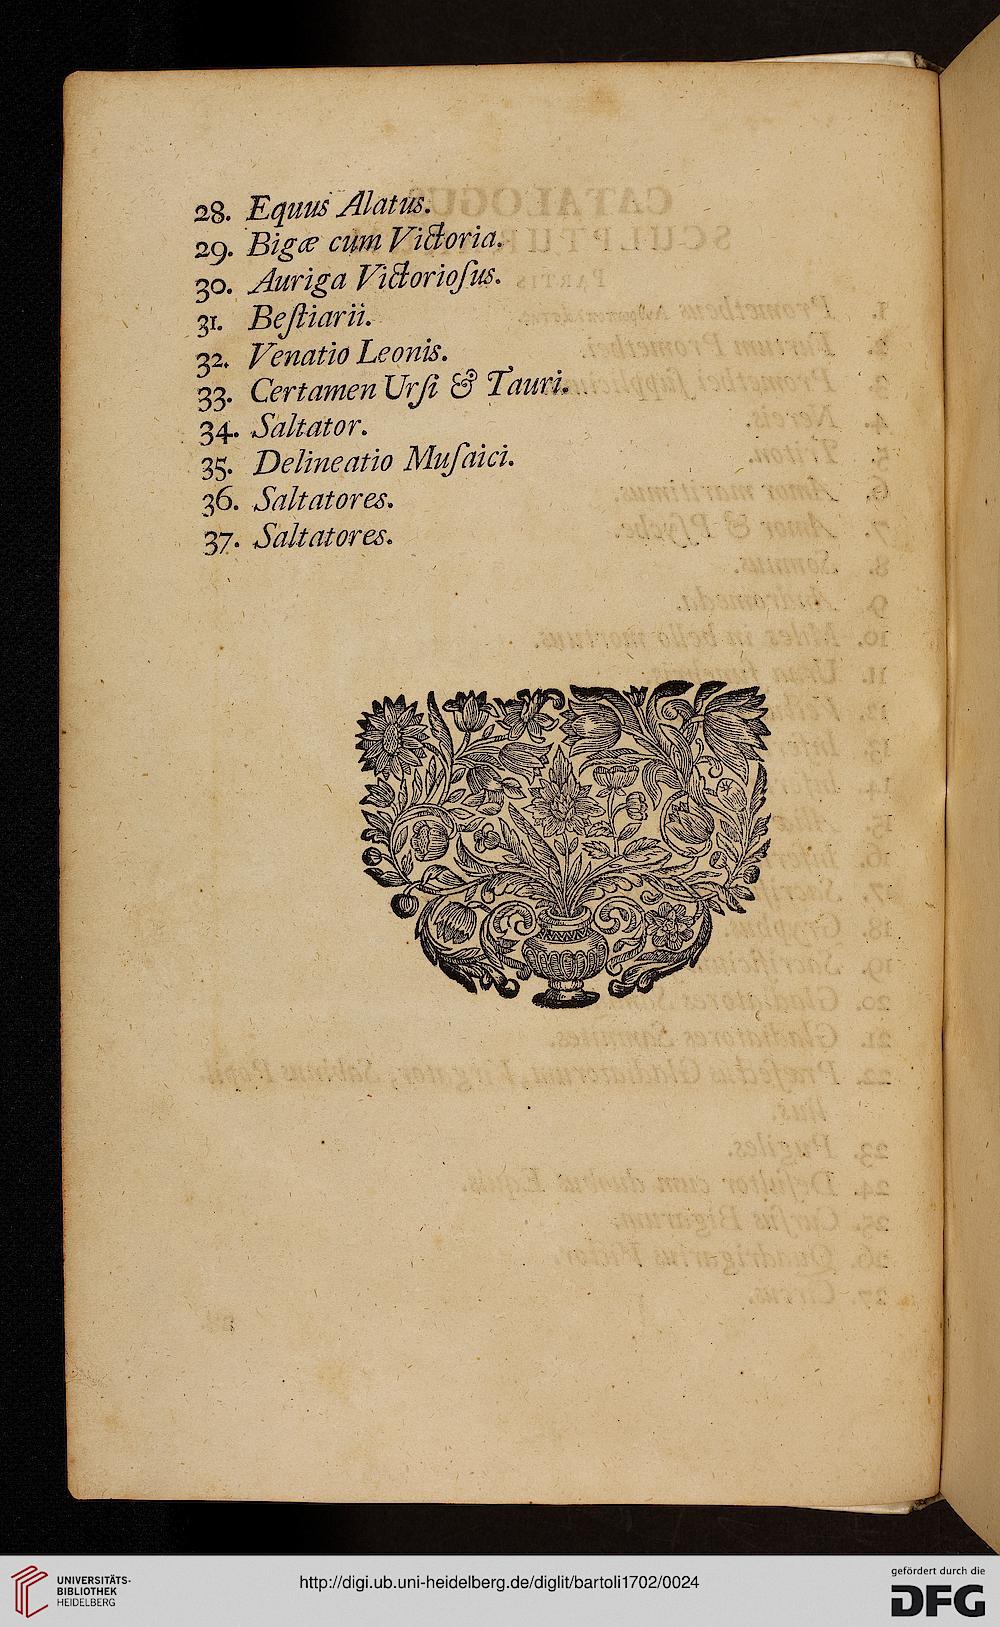 28. Equus Alatus.
29. Bigæ cum Victoria.
30. Auriga Victorioſus.
31. Beſtiarii.
32. Venatio Leonis.
33. Certamen Urſi & Tauri.
34. Saltator.
35. Delineatio Muſaici.
36. Saltatores.
37. Saltatores.
UNIVERSITÄTS-
BIBLIOTHEK
HEIDELBERG
http://digi.ub.uni-heidelberg.de/diglit/bartoli1702/0024
gefördert durch die
DFG